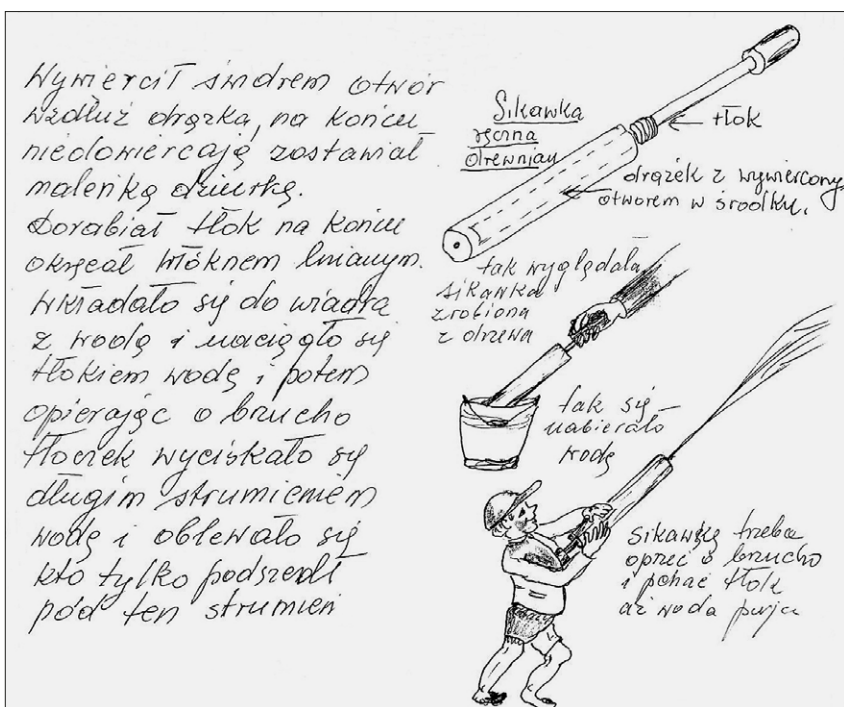 Wywiercił świdrem otwór
wzdłuż drążka, na końcu
niedowiercają zostawiał
maleńką dziurkę.
Dorabiał tłok na końcu
okręcał włóknem lnianym.
Wkładało się do wiadra
z wodą i naciągało się
tłokiem wodę i potem
opierając o brzucho
tłoczek wyciskało się
długim strumieniem
wodę i oblewało się
kto tylko podszedł
pod ten strumień
Sikawka
ręczna
drewnian
tłok
drążek z wywiercony
otworem w środku.
tak wyglądała
sikawka
zrobiona
z drzewa
tak się
nabierało
wodę
sikawkę trzeba
oprzeć o brzucho
i pchać tłok
aż woda